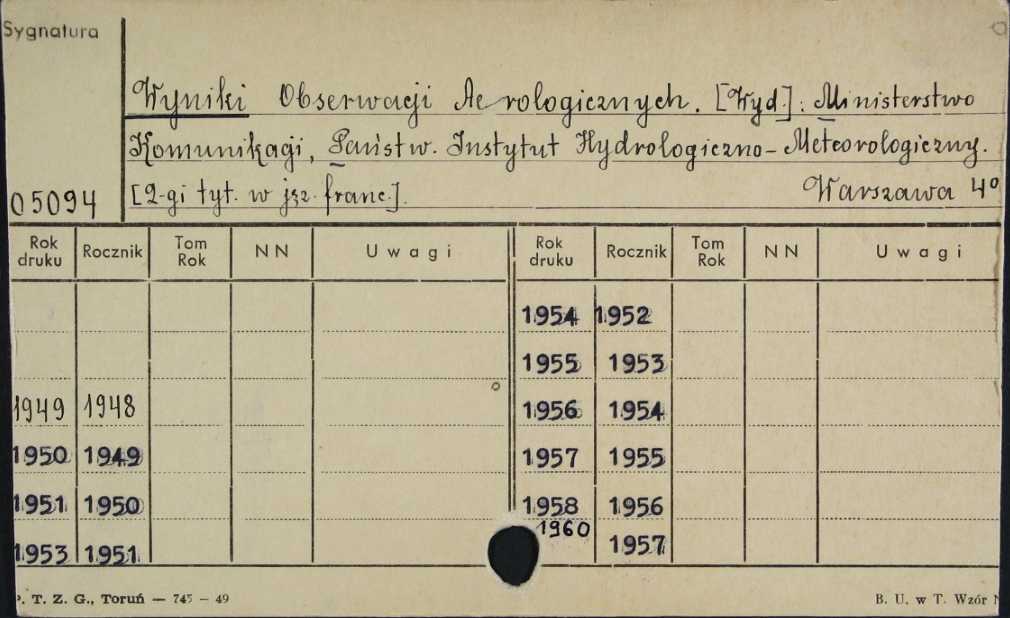 Sygnatura
Wyniki Obserwacji Aerologicznych. [Wyd.]: Ministerstwo
Komunikacji, Państw. Instytut Hydrologiczno-Meteorologiczny.
05094 [2-gi tyt. w jęz. franc.]. Warszawa 4°
Rok druku Rocznik Tom Rok NN Uwagi Rok druku Rocznik Tom Rok NN Uwagi
1954 1952
1955 1953
1949 1948 1956 1954
1950 1949 1957 1955
1951 1950 1958 1956
1953 1951 1960 1957
P. T. Z. G., Toruń — 745 — 49 B. U. w T. Wzór